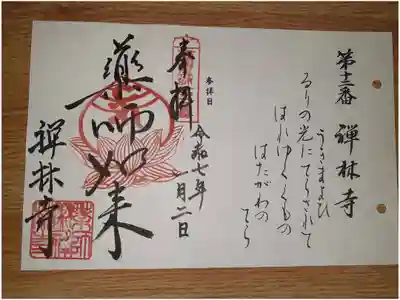 第十二番 禅林寺
うきまよひ
るりの光にてらされて
はれゆくくもの
はたがわの
てら
参拝日
令和七年
一月二日
奉拝
薬師如来
禅林寺